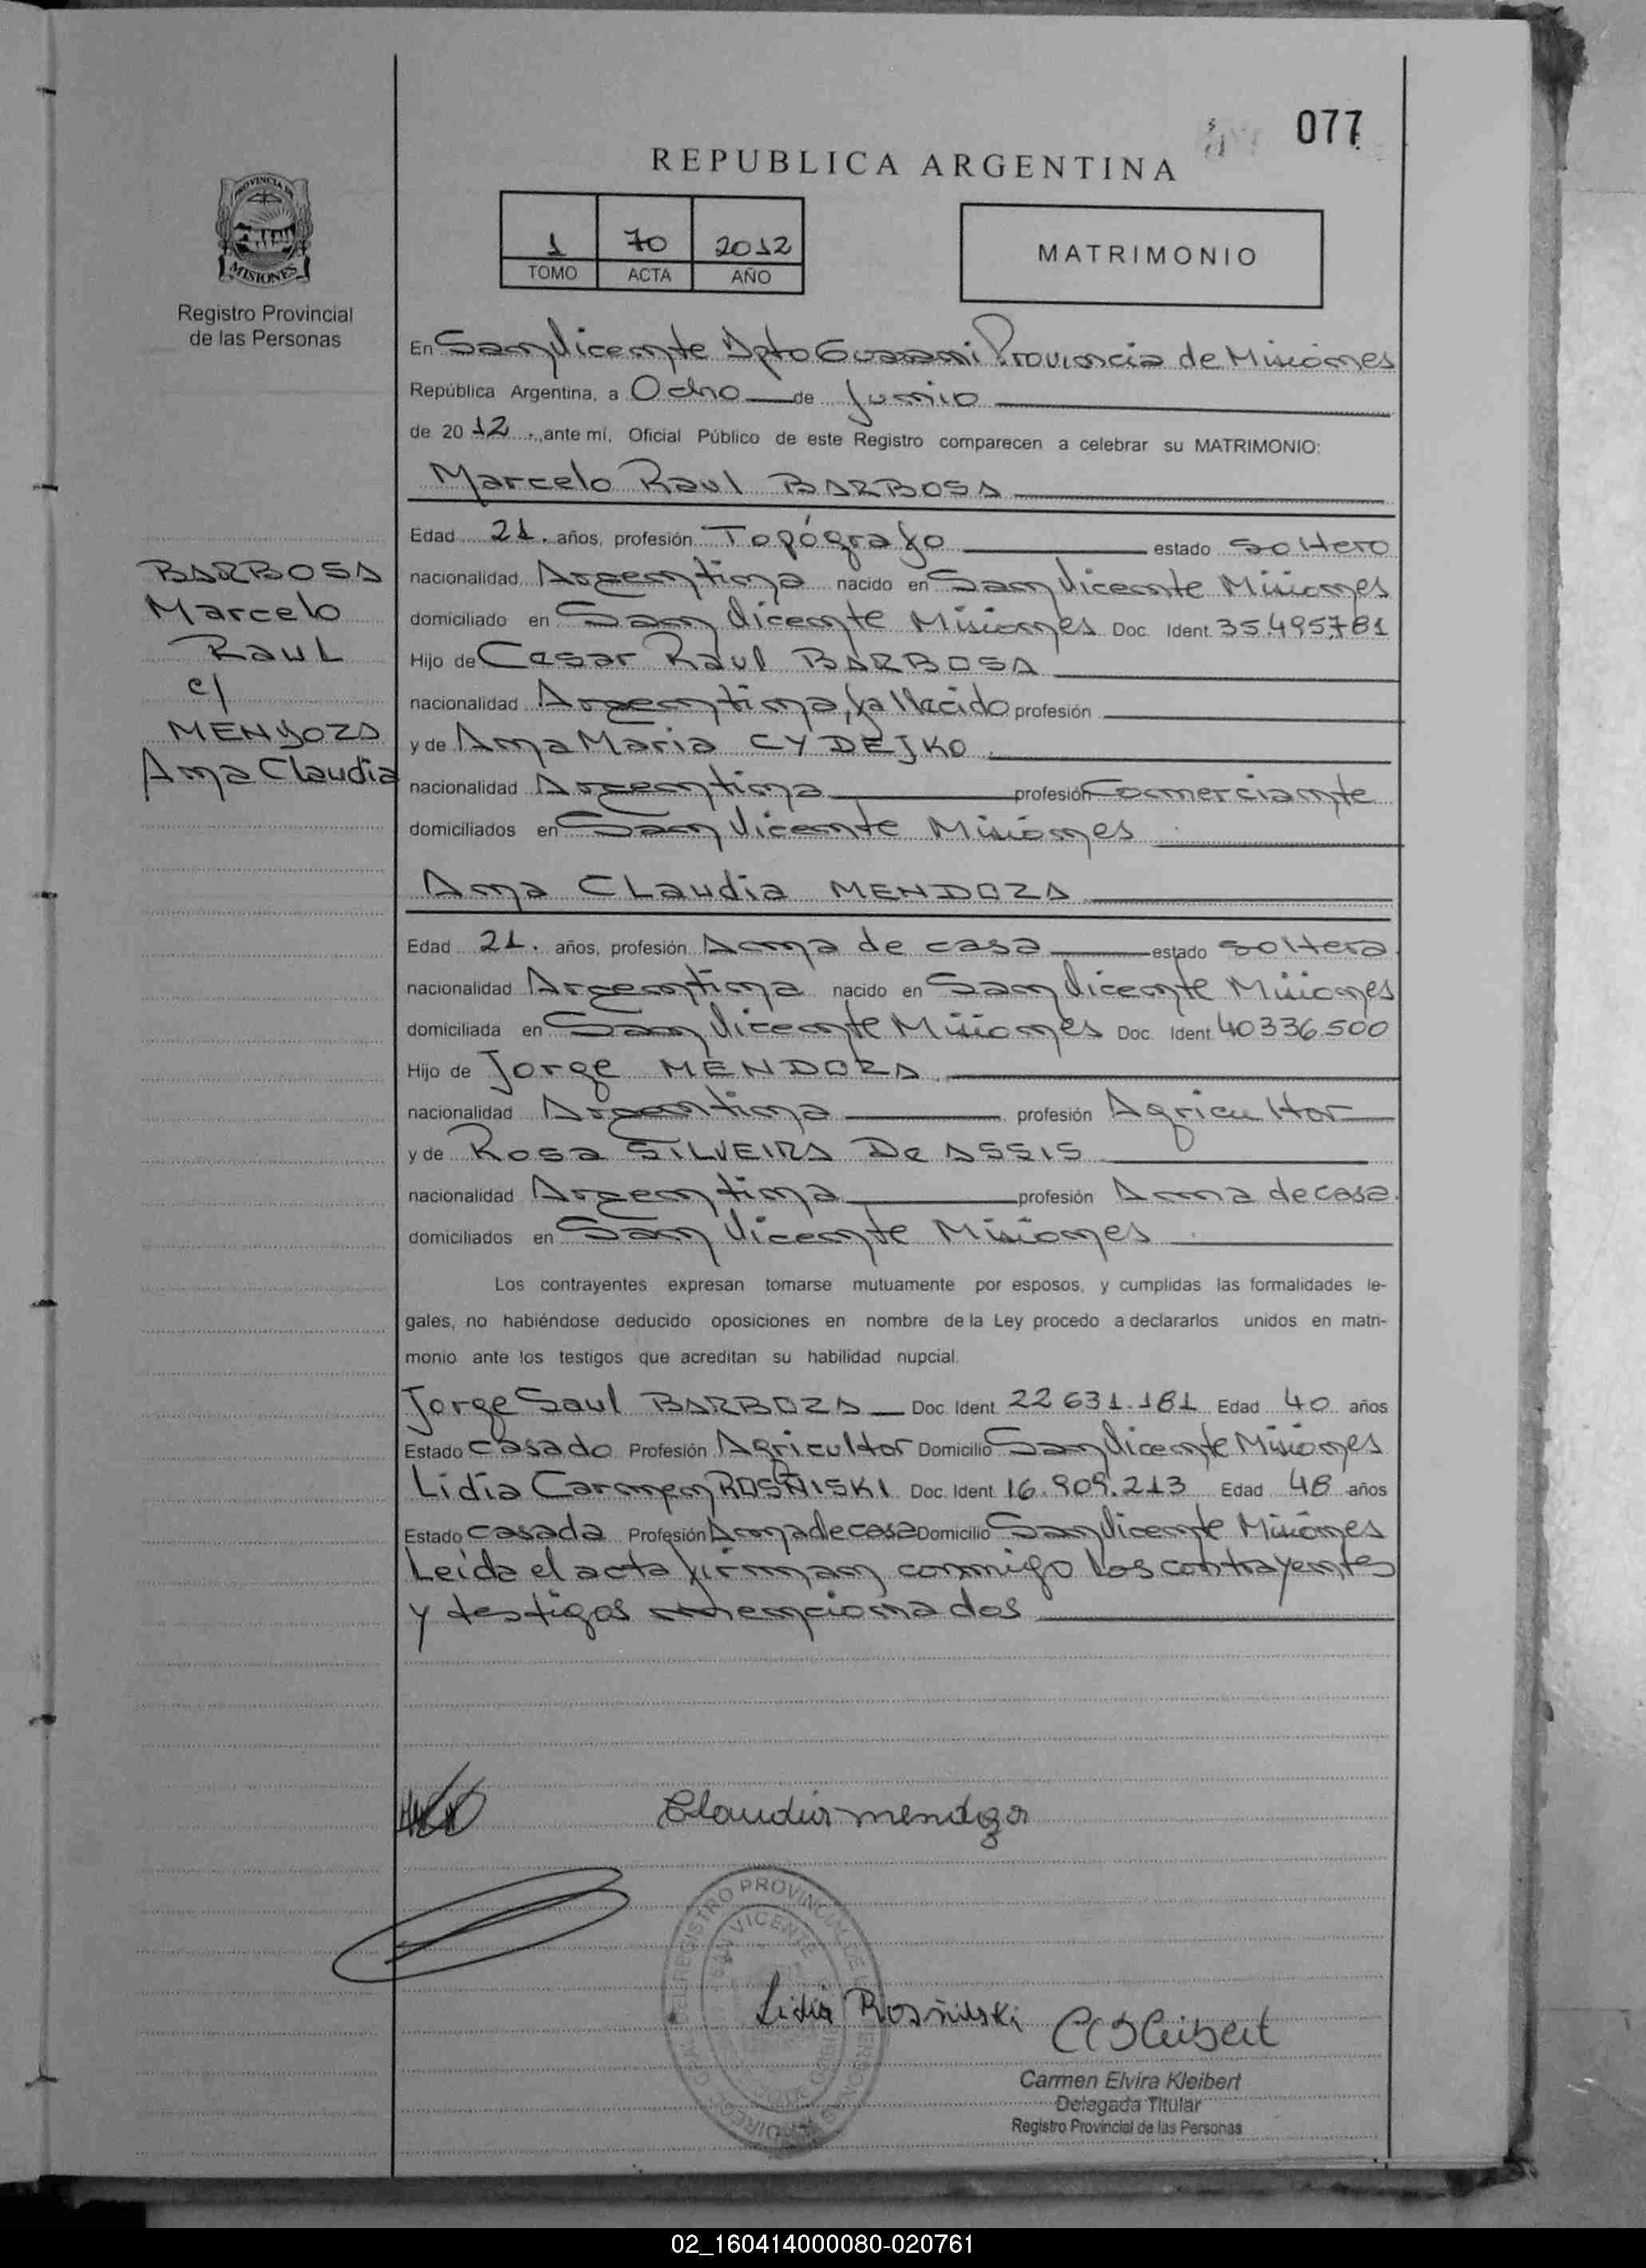 077
REPUBLICA ARGENTINA
PROVINCIA DE
MISIONES
Registro Provincial
de las Personas
1 70 2012
TOMO ACTA AÑO
MATRIMONIO
En San Vicente Dpto Guarani Provincia de Misiones
República Argentina, a Ocho de Junio
de 2012, ante mí, Oficial Público de este Registro comparecen a celebrar su MATRIMONIO:
Marcelo Raul BARBOSA
Edad 21. años, profesión Topógrafo estado Soltero
nacionalidad Argentina nacido en San Vicente Misiones
domiciliado en San Vicente Misiones Doc. Ident. 35.495.781
Hijo de Cesar Raul BARBOSA
nacionalidad Argentina, fallecido profesión
y de Ana Maria CYDEJKO
nacionalidad Argentina profesión Comerciante
domiciliados en San Vicente Misiones
BARBOSA
Marcelo
RauL
c/
MENDOZA
Ana Claudia
Ana CLaudia MENDOZA
Edad 21. años, profesión Ama de casa estado soltera
nacionalidad Argentina nacido en San Vicente Misiones
domiciliada en San Vicente Misiones Doc. Ident. 40336.500
Hijo de Jorge MENDOZA
nacionalidad Argentina profesión Agricultor
y de Rosa SILVEIRA De ASSIS
nacionalidad Argentina profesión Ama de casa.
domiciliados en San Vicente Misiones
Los contrayentes expresan tomarse mutuamente por esposos, y cumplidas las formalidades le-
gales, no habiéndose deducido oposiciones en nombre de la Ley procedo a declararlos unidos en matri-
monio ante los testigos que acreditan su habilidad nupcial.
Jorge Saul BARBOZA Doc. Ident. 22 631.181 Edad 40 años
Estado Casado Profesión Agricultor Domicilio San Vicente Misiones
Lidia Carmen ROSÑISKI Doc. Ident. 16.909.213 Edad 48 años
Estado Casada Profesión Ama de casa Domicilio San Vicente Misiones
Leida el acta firman conmigo los contrayentes
y testigos mencionados
Claudia mendoza
REGISTRO PROVINCIAL DE
SAN VICENTE
Lidia Rosñiski
C Kleibert
Carmen Elvira Kleibert
Delegada Titular
Registro Provincial de las Personas
02_160414000080-020761